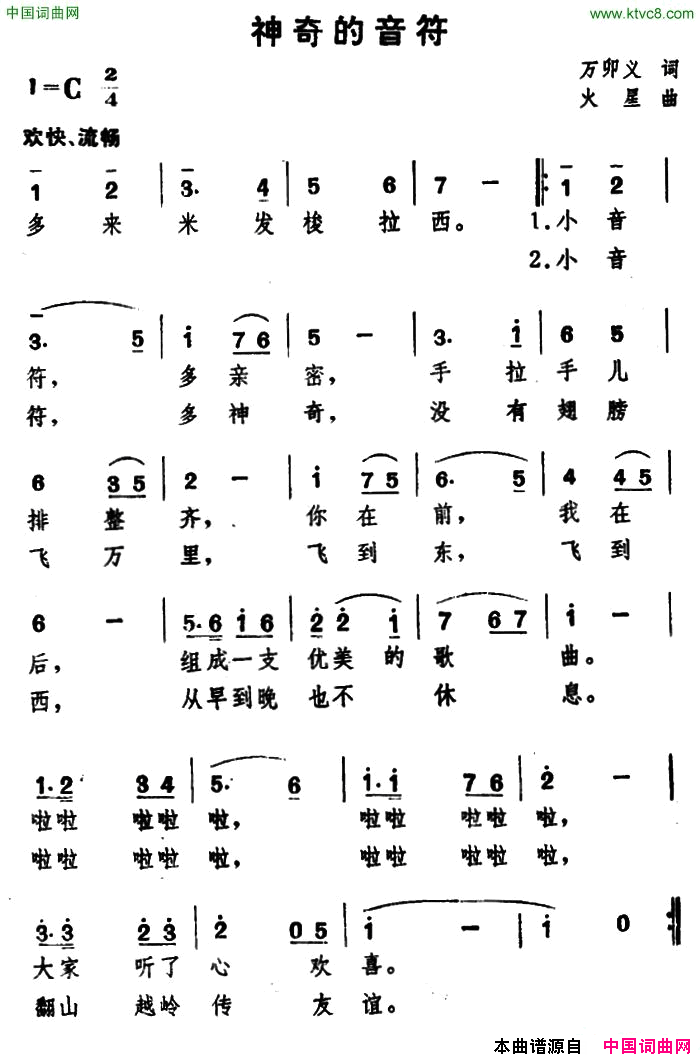 中国词曲网
www.ktvc8.com
神奇的音符
1=C 2/4
万卯义 词
火星 曲
欢快、流畅
1 2 | 3. 4 | 5 6 | 7 － |: 1 2 |
多来米发梭拉西。 1.小音
2.小音
3. 5 | i 7 6 | 5 － | 3. i | 6 5 |
符，多亲密，手拉手儿
符，多神奇，没有翅膀
6 3 5 | 2 － | i 7 5 | 6. 5 | 4 4 5 |
排整齐，你在前，我在
飞万里，飞到东，飞到
6 － | 5. 6 i 6 | 2 2 i | 7 6 7 | i － |
后，组成一支优美的歌曲。
西，从早到晚也不休息。
1. 2 3 4 | 5. 6 | i. i 7 6 | 2 － |
啦啦 啦啦 啦， 啦啦 啦啦 啦，
啦啦 啦啦 啦， 啦啦 啦啦 啦，
3. 3 2 3 | 2 0 5 | i － | i 0 :|
大家听了心欢喜。
翻山越岭传友谊。
本曲谱源自 中国词曲网